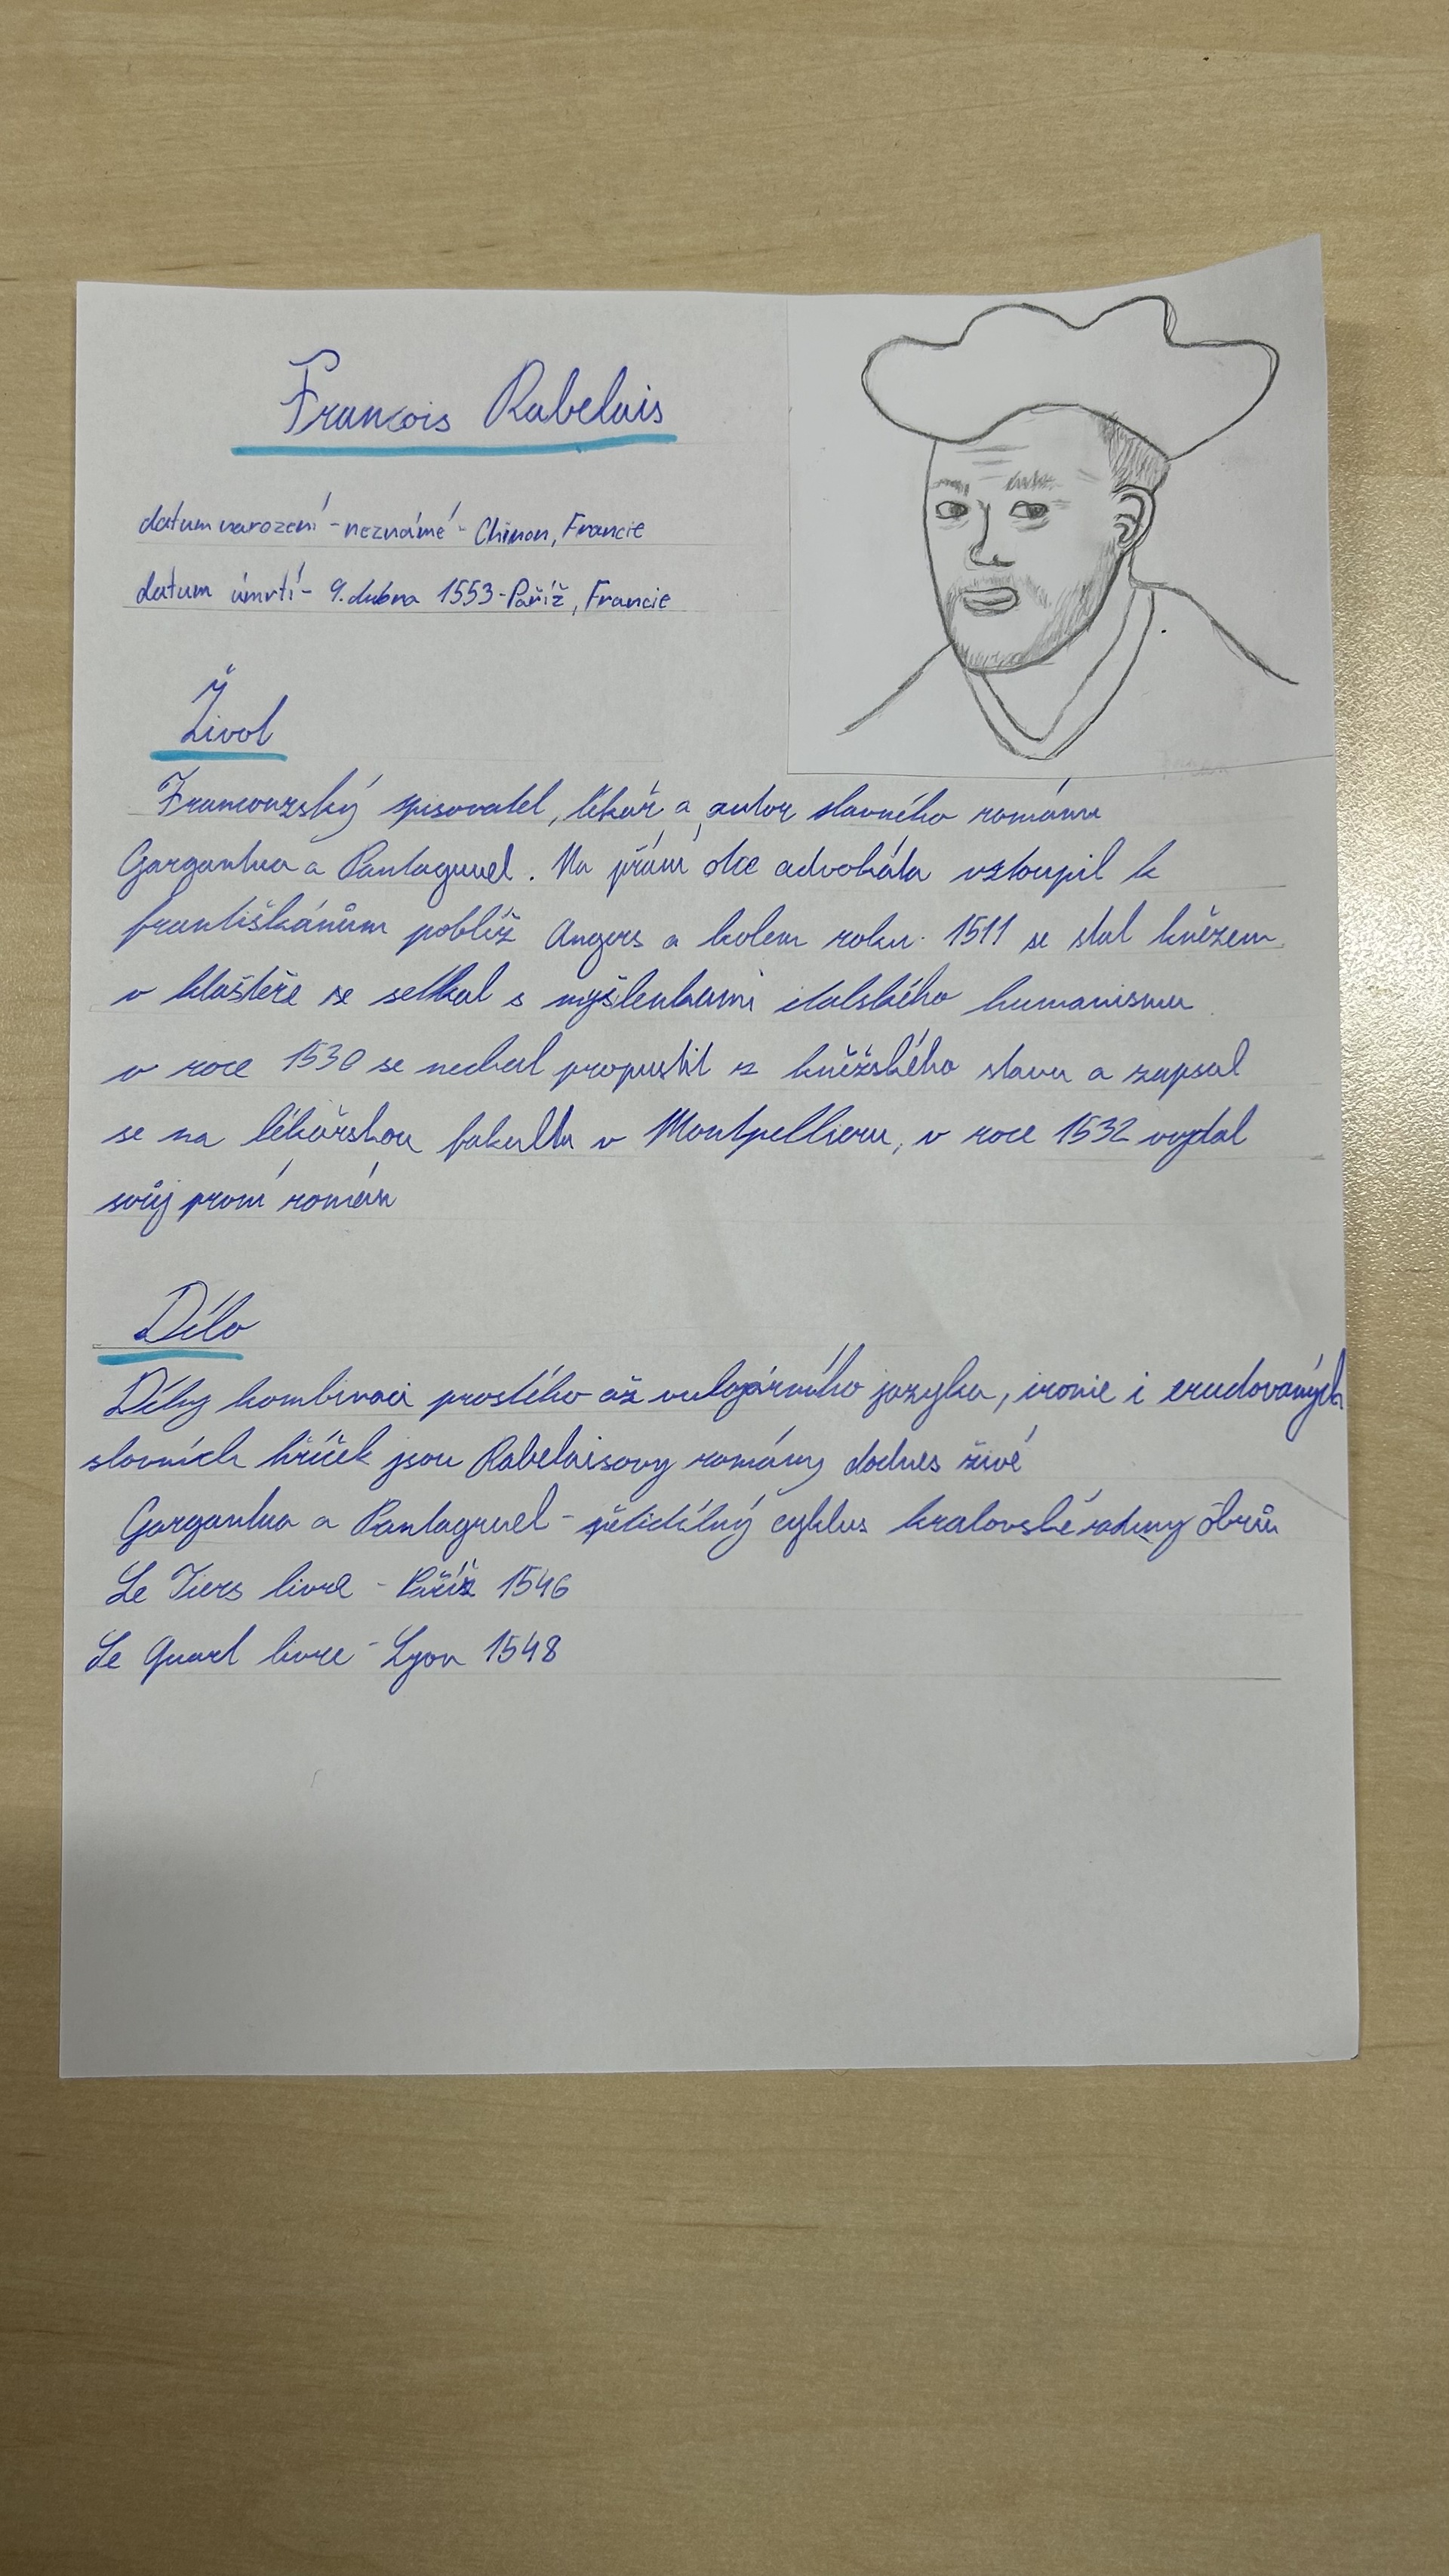 Francois Rabelais
datum narození - neznámé - Chinon, Francie
datum úmrtí - 9. dubna 1553 - Paříž, Francie
Život
Francouzský spisovatel, lékář a autor slavného románu
Gargantua a Pantagruel. Na přání otce advokáta vstoupil k
františkánům poblíž Angers a kolem roku 1511 se stal knězem
v klášteře se setkal s myšlenkami italského humanismu
v roce 1530 se nechal propustit z kněžského stavu a zapsal
se na lékařskou fakultu v Montpellieru, v roce 1532 vydal
svůj první román
Dílo
Díky kombinaci prostého až vulgárního jazyka, ironie i erudovaných
slovních hříček jsou Rabelaisovy romány dodnes živé
Gargantua a Pantagruel - pětidílný cyklus kralovské rodiny obrů
Le Tiers livre - Paříž 1546
Le Quart livre - Lyon 1548